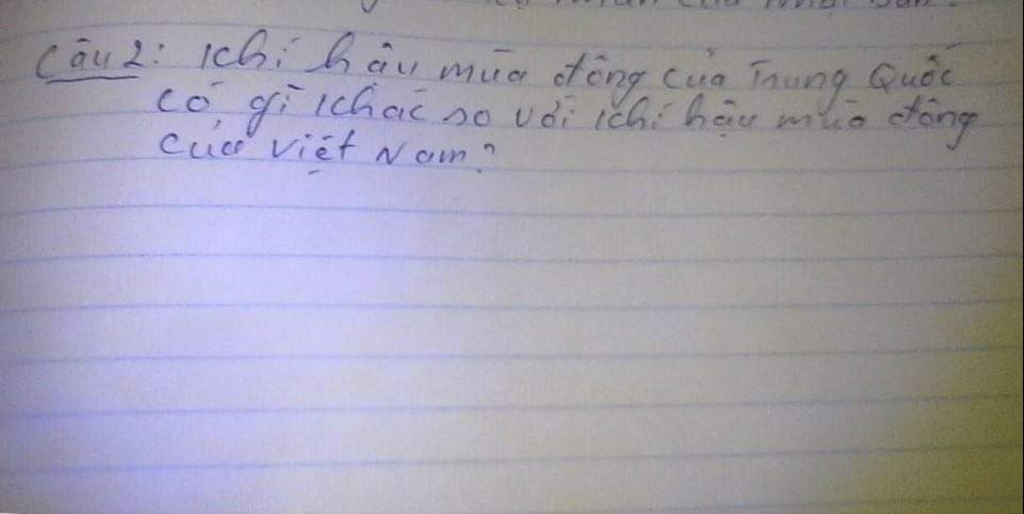 Câu 2: Khí hậu mùa đông của Trung Quốc
có gì khác so với khí hậu mùa đông
của Việt Nam?